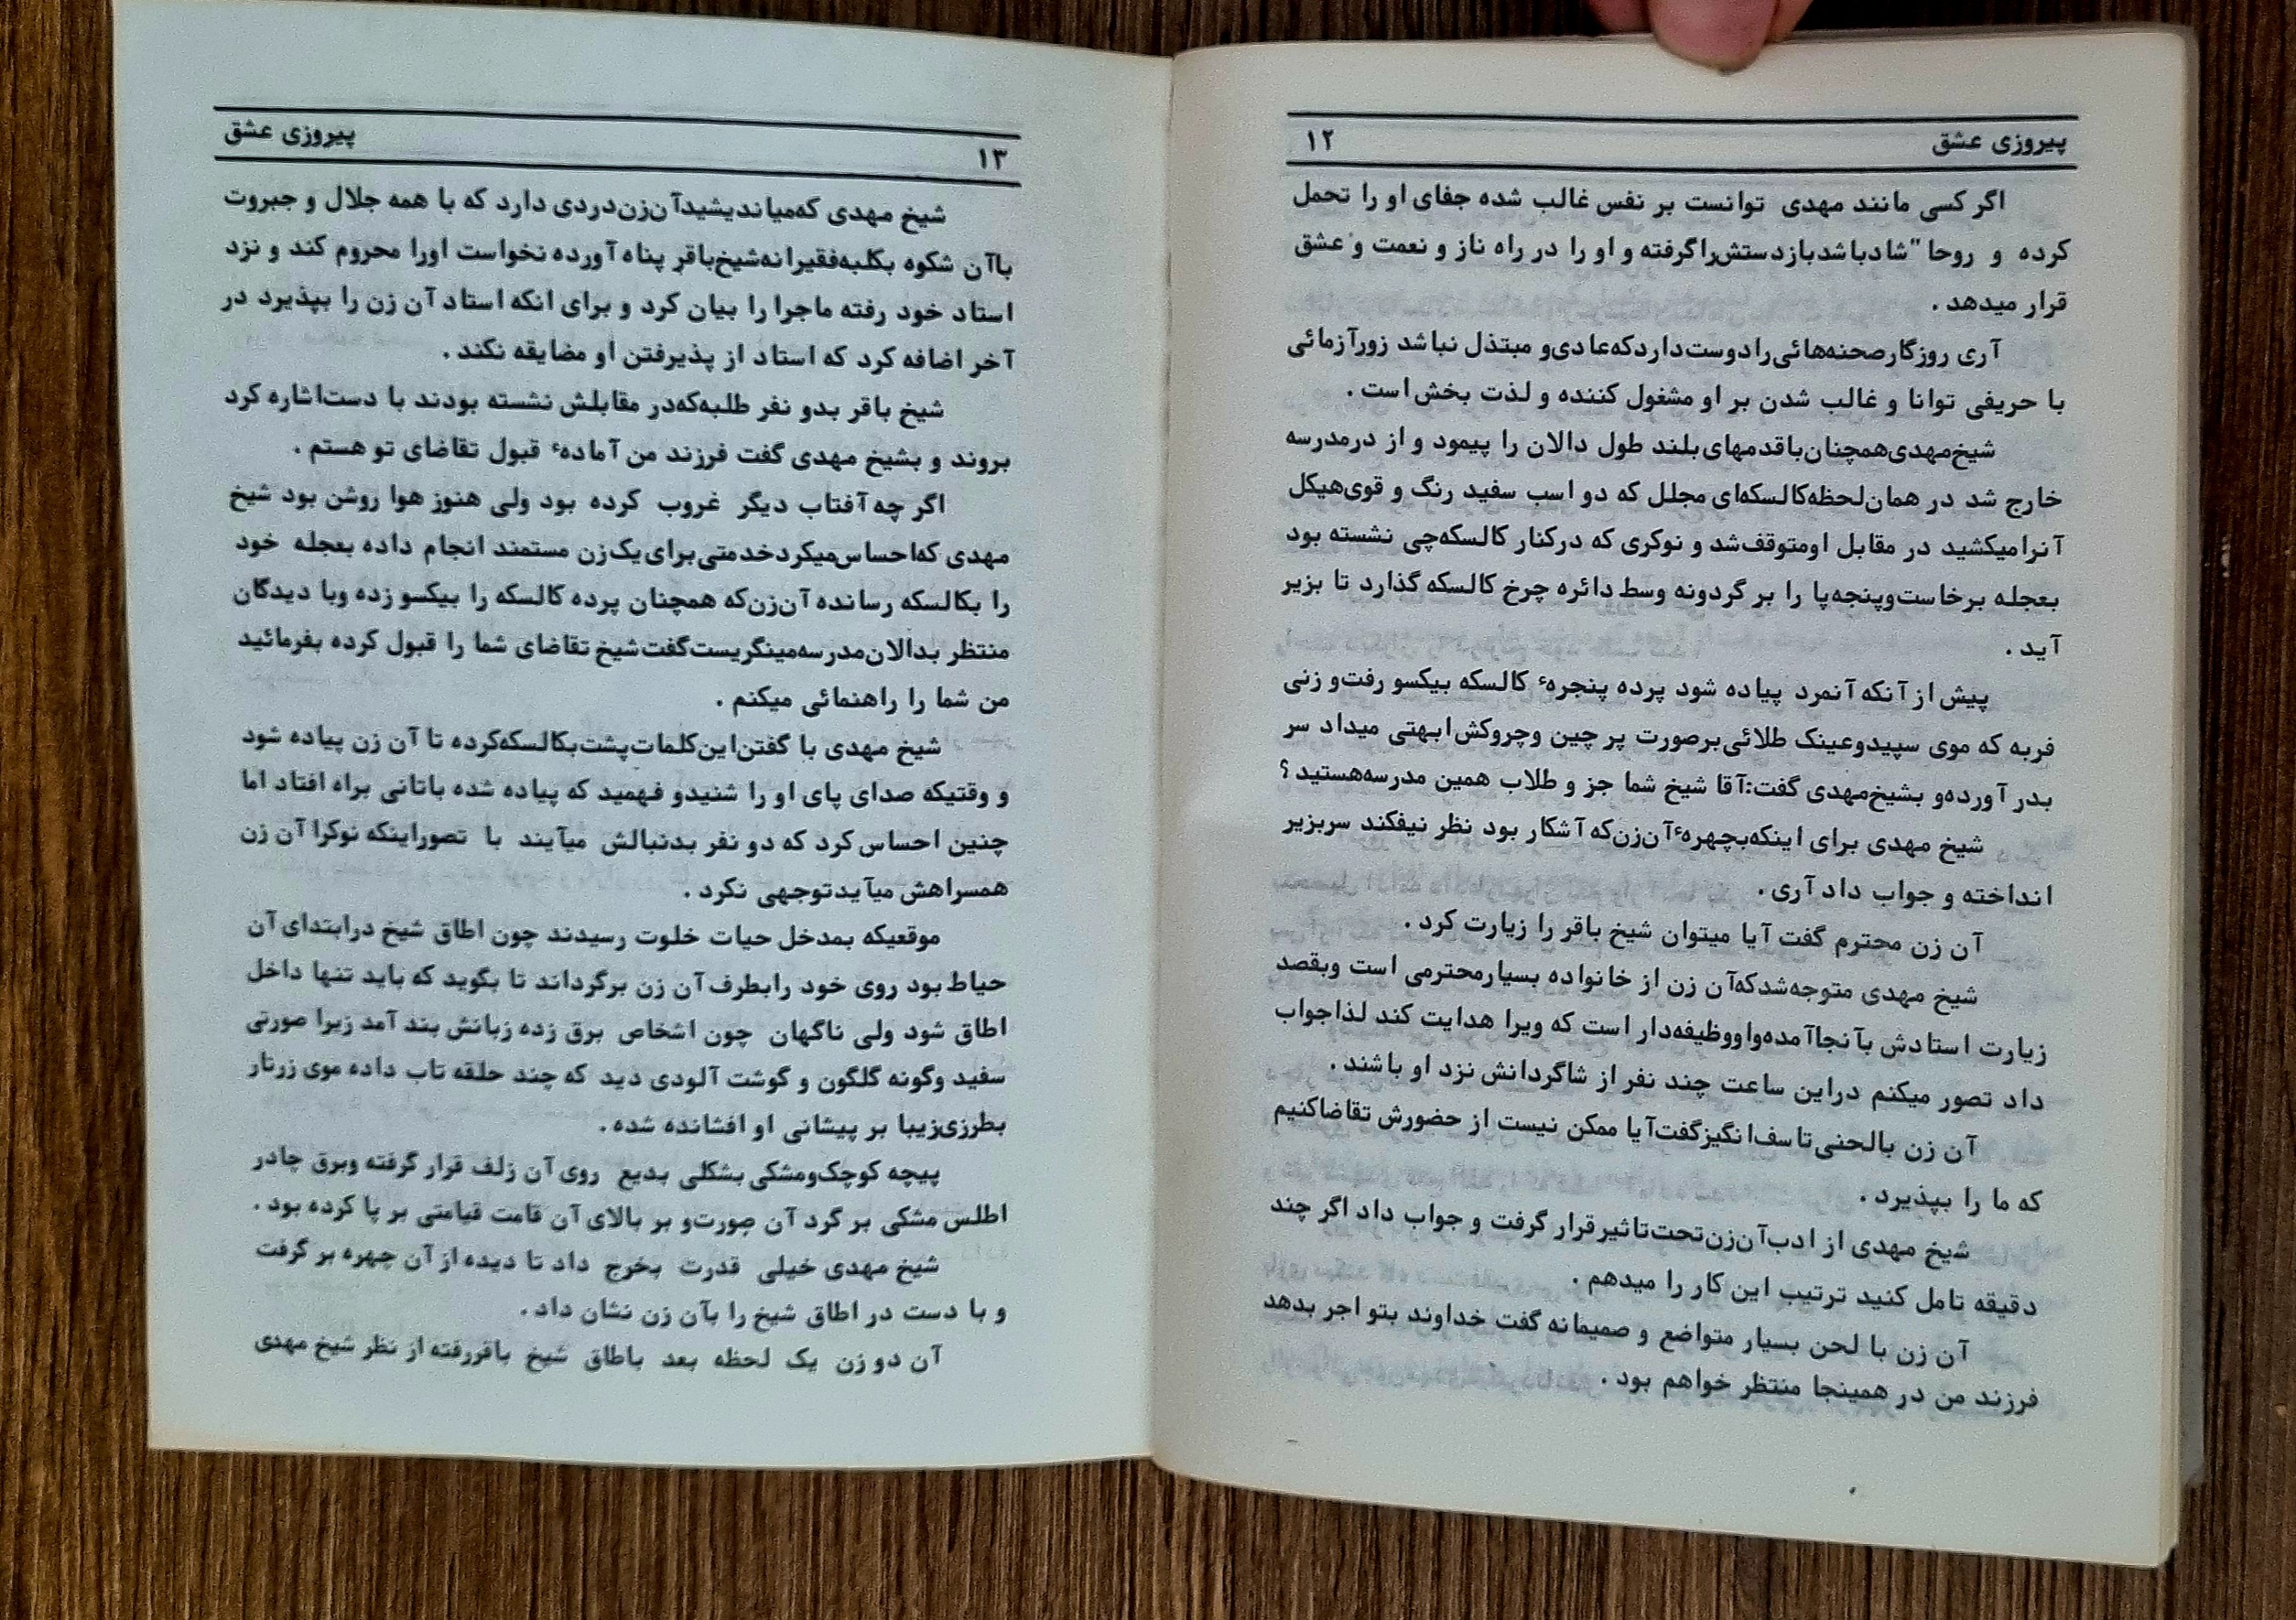 پیروزی عشق
۱۲
اگر کسی مانند مهدی توانست بر نفس غالب شده جفای او را تحمل
کرده و روحا "شادباشدبازدستش‌راگرفته و او را در راه ناز و نعمت و عشق
قرار میدهد .
آری روزگارصحنه‌هائی‌رادوست‌داردکه‌عادی‌و مبتذل نباشد زورآزمائی
با حریفی توانا و غالب شدن بر او مشغول کننده و لذت بخش است .
شیخ‌مهدی‌همچنان‌باقدمهای‌بلند طول دالان را پیمود و از درمدرسه
خارج شد در همان‌لحظه‌کالسکه‌ای مجلل که دو اسب سفید رنگ و قوی‌هیکل
آنرامیکشید در مقابل اومتوقف‌شد و نوکری که درکنار کالسکه‌چی نشسته بود
بعجله برخاست‌وپنجه‌پا را بر گردونه وسط دائره چرخ کالسکه گذارد تا بزیر
آید .
پیش از آنکه آنمرد پیاده شود پرده پنجرهٔ کالسکه بیکسو رفت‌و زنی
فربه که موی سپیدوعینک طلائی‌برصورت پر چین وچروکش‌ابهتی میداد سر
بدر آورده‌و بشیخ‌مهدی گفت:آقا شیخ شما جز و طلاب همین مدرسه‌هستید ؟
شیخ مهدی برای اینکه‌بچهرهٔ‌آن‌زن‌که آشکار بود نظر نیفکند سربزیر
انداخته و جواب داد آری .
آن زن محترم گفت آیا میتوان شیخ باقر را زیارت کرد .
شیخ مهدی متوجه‌شدکه‌آن زن از خانواده بسیارمحترمی است وبقصد
زیارت استادش بآنجاآمده‌واووظیفه‌دار است که ویرا هدایت کند لذاجواب
داد تصور میکنم دراین ساعت چند نفر از شاگردانش نزد او باشند .
آن زن بالحنی‌تاسف‌انگیزگفت‌آیا ممکن نیست از حضورش تقاضاکنیم
که ما را بپذیرد .
شیخ مهدی از ادب‌آن‌زن‌تحت‌تاثیرقرار گرفت و جواب داد اگر چند
دقیقه تامل کنید ترتیب این کار را میدهم .
آن زن با لحن بسیار متواضع و صمیمانه گفت خداوند بتو اجر بدهد
فرزند من در همینجا منتظر خواهم بود .
۱۳
پیروزی عشق
شیخ مهدی که‌میاندیشیدآن‌زن‌دردی دارد که با همه جلال و جبروت
باآن شکوه بکلبه‌فقیرانه‌شیخ‌باقر پناه آورده نخواست اورا محروم کند و نزد
استاد خود رفته ماجرا را بیان کرد و برای انکه استاد آن زن را بپذیرد در
آخر اضافه کرد که استاد از پذیرفتن او مضایقه نکند .
شیخ باقر بدو نفر طلبه‌که‌در مقابلش نشسته بودند با دست‌اشاره کرد
بروند و بشیخ مهدی گفت فرزند من آمادهٔ قبول تقاضای تو هستم .
اگر چه آفتاب دیگر غروب کرده بود ولی هنوز هوا روشن بود شیخ
مهدی که‌احساس‌میکردخدمتی‌برای‌یک‌زن مستمند انجام داده بعجله خود
را بکالسکه رسانده آن‌زن‌که همچنان پرده کالسکه را بیکسو زده وبا دیدگان
منتظر بدالان‌مدرسه‌مینگریست‌گفت‌شیخ تقاضای شما را قبول کرده بفرمائید
من شما را راهنمائی میکنم .
شیخ مهدی با گفتن‌این‌کلمات‌پشت‌بکالسکه‌کرده تا آن زن پیاده شود
و وقتیکه صدای پای او را شنیدو فهمید که پیاده شده باتانی براه افتاد اما
چنین احساس کرد که دو نفر بدنبالش میآیند با تصوراینکه نوکرا آن زن
همسراهش میآیدتوجهی نکرد .
موقعیکه بمدخل حیات خلوت رسیدند چون اطاق شیخ درابتدای آن
حیاط بود روی خود رابطرف آن زن برگرداند تا بگوید که باید تنها داخل
اطاق شود ولی ناگهان چون اشخاص برق زده زبانش بند آمد زیرا صورتی
سفید وگونه گلگون و گوشت آلودی دید که چند حلقه تاب داده موی زرتار
بطرزی‌زیبا بر پیشانی او افشانده شده .
پیچه کوچک‌ومشکی بشکلی بدیع روی آن زلف قرار گرفته وبرق چادر
اطلس مشکی بر گرد آن صورت‌و بر بالای آن قامت قیامتی بر پا کرده بود .
شیخ مهدی خیلی قدرت بخرج داد تا دیده از آن چهره بر گرفت
و با دست در اطاق شیخ را بآن زن نشان داد .
آن دو زن یک لحظه بعد باطاق شیخ باقررفته از نظر شیخ مهدی